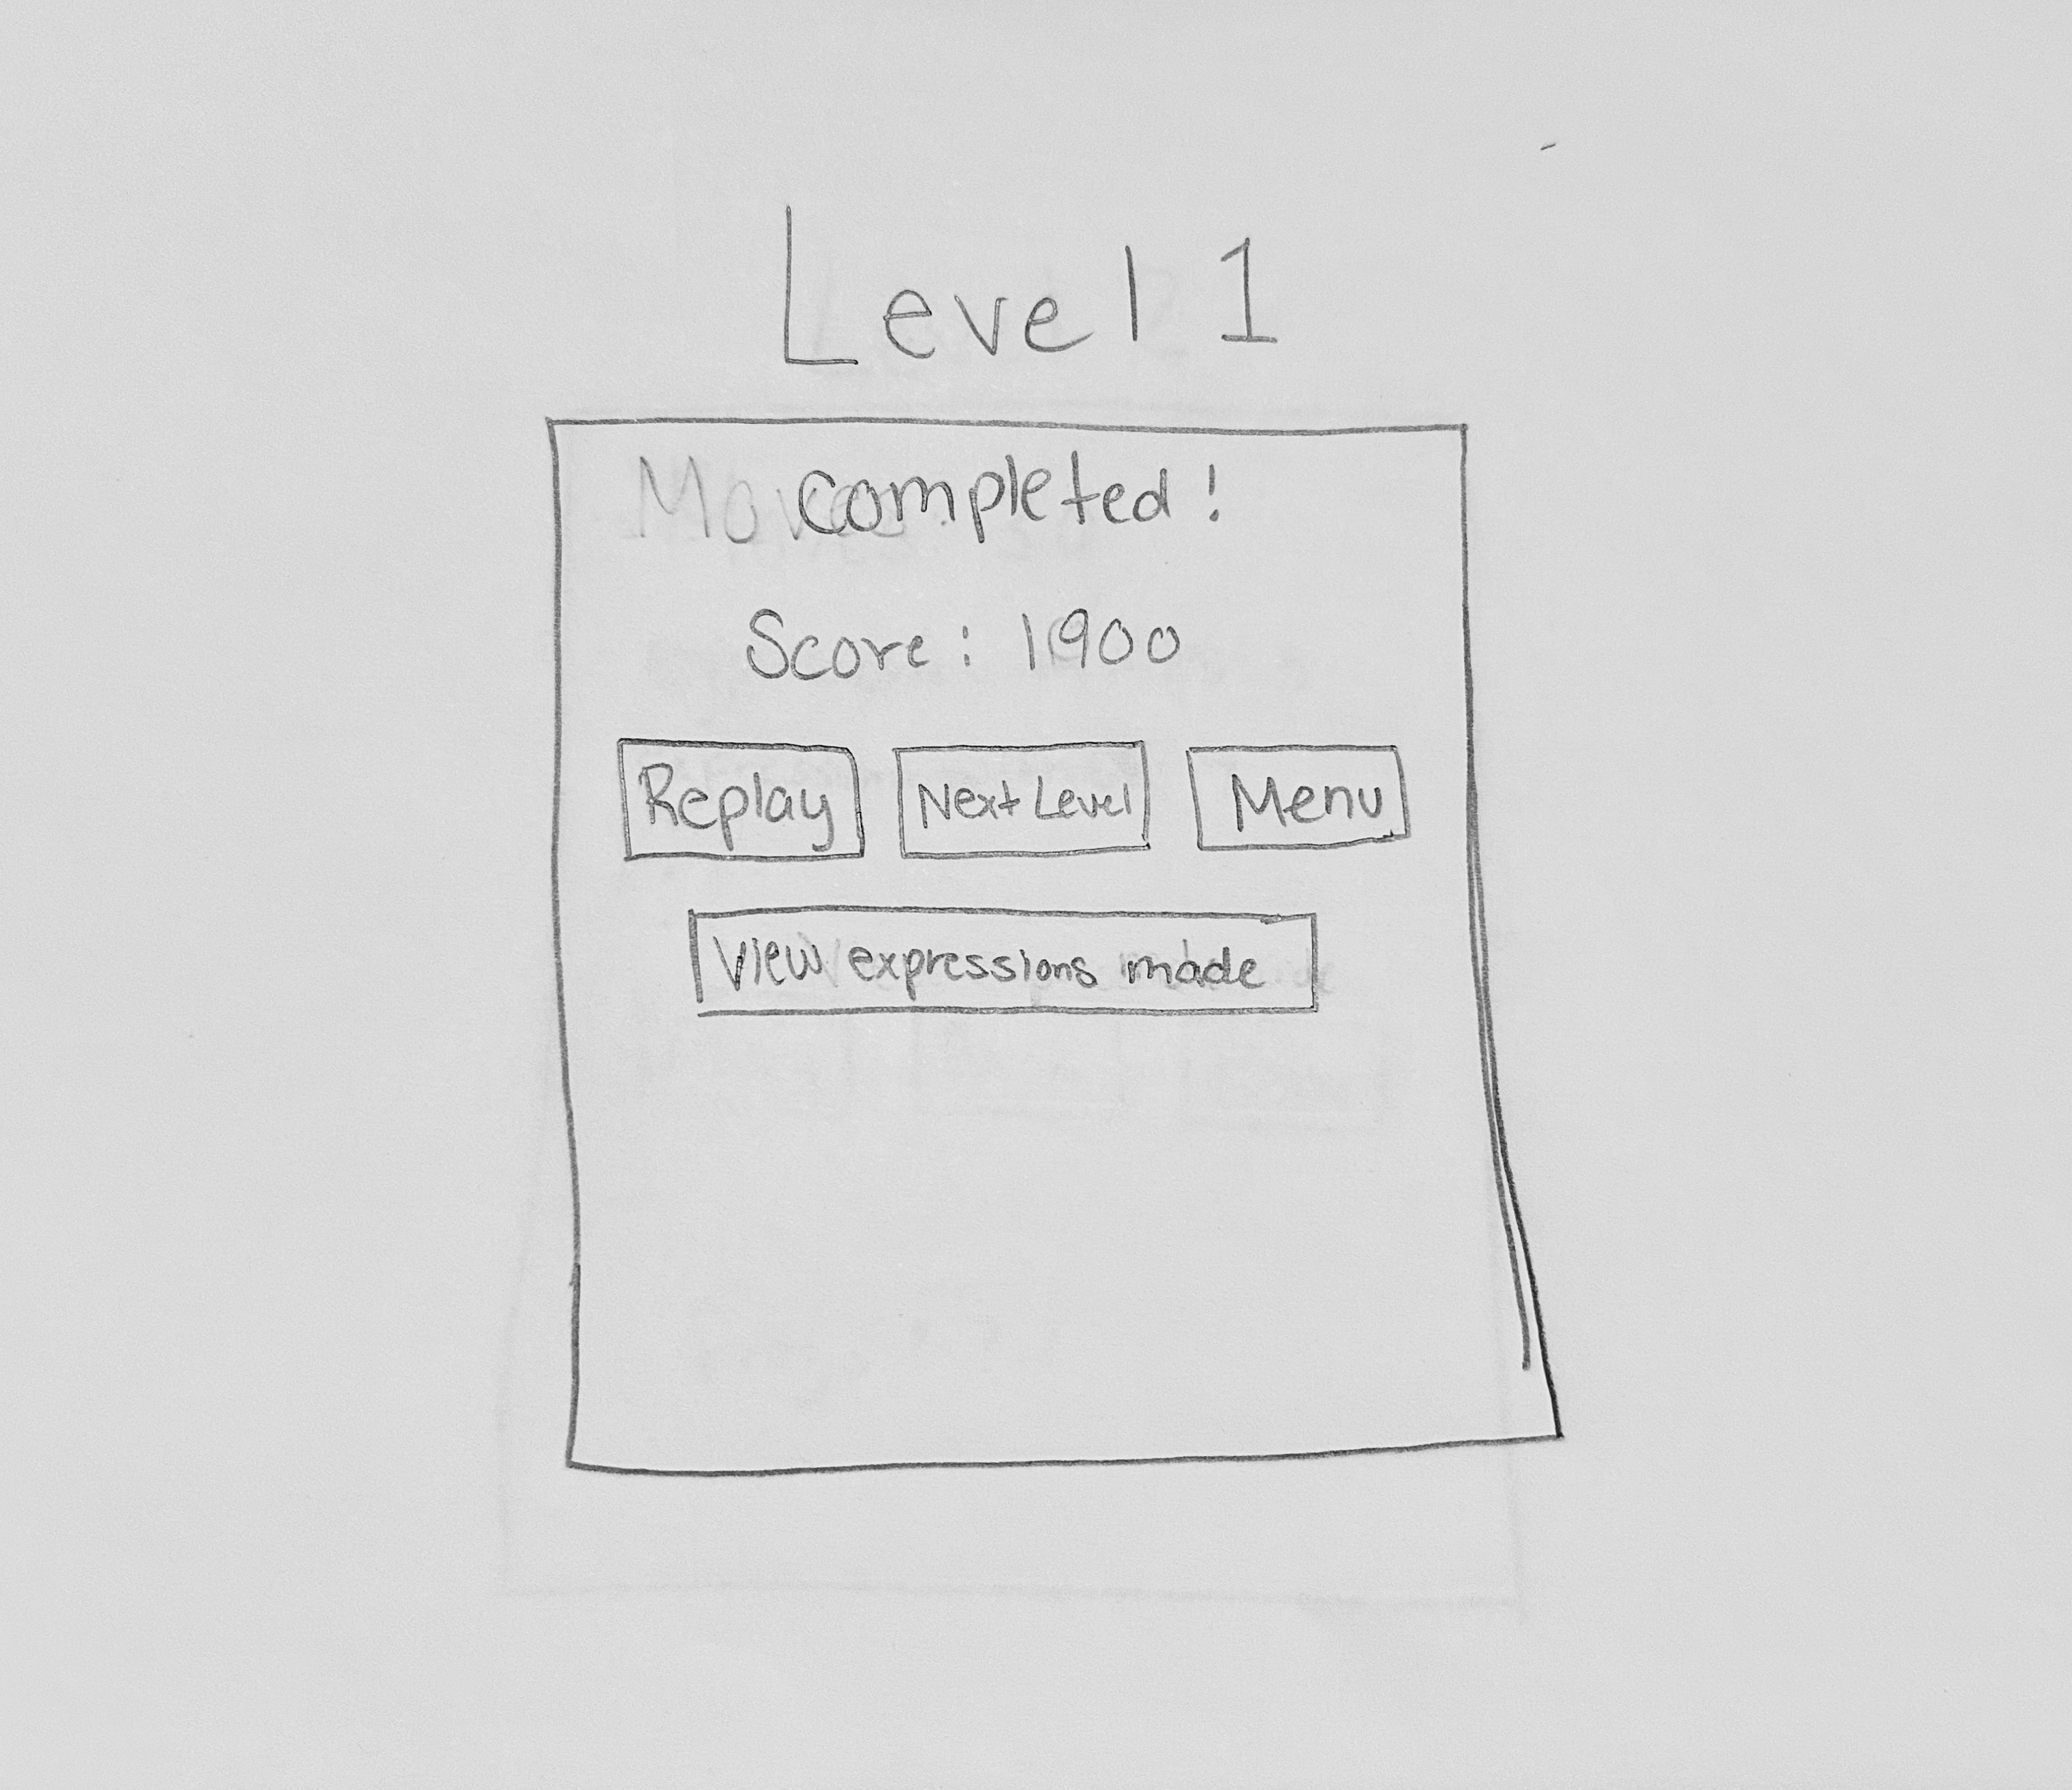 Level 1
Completed!
Score: 1900
Replay Next Level Menu
View expressions made